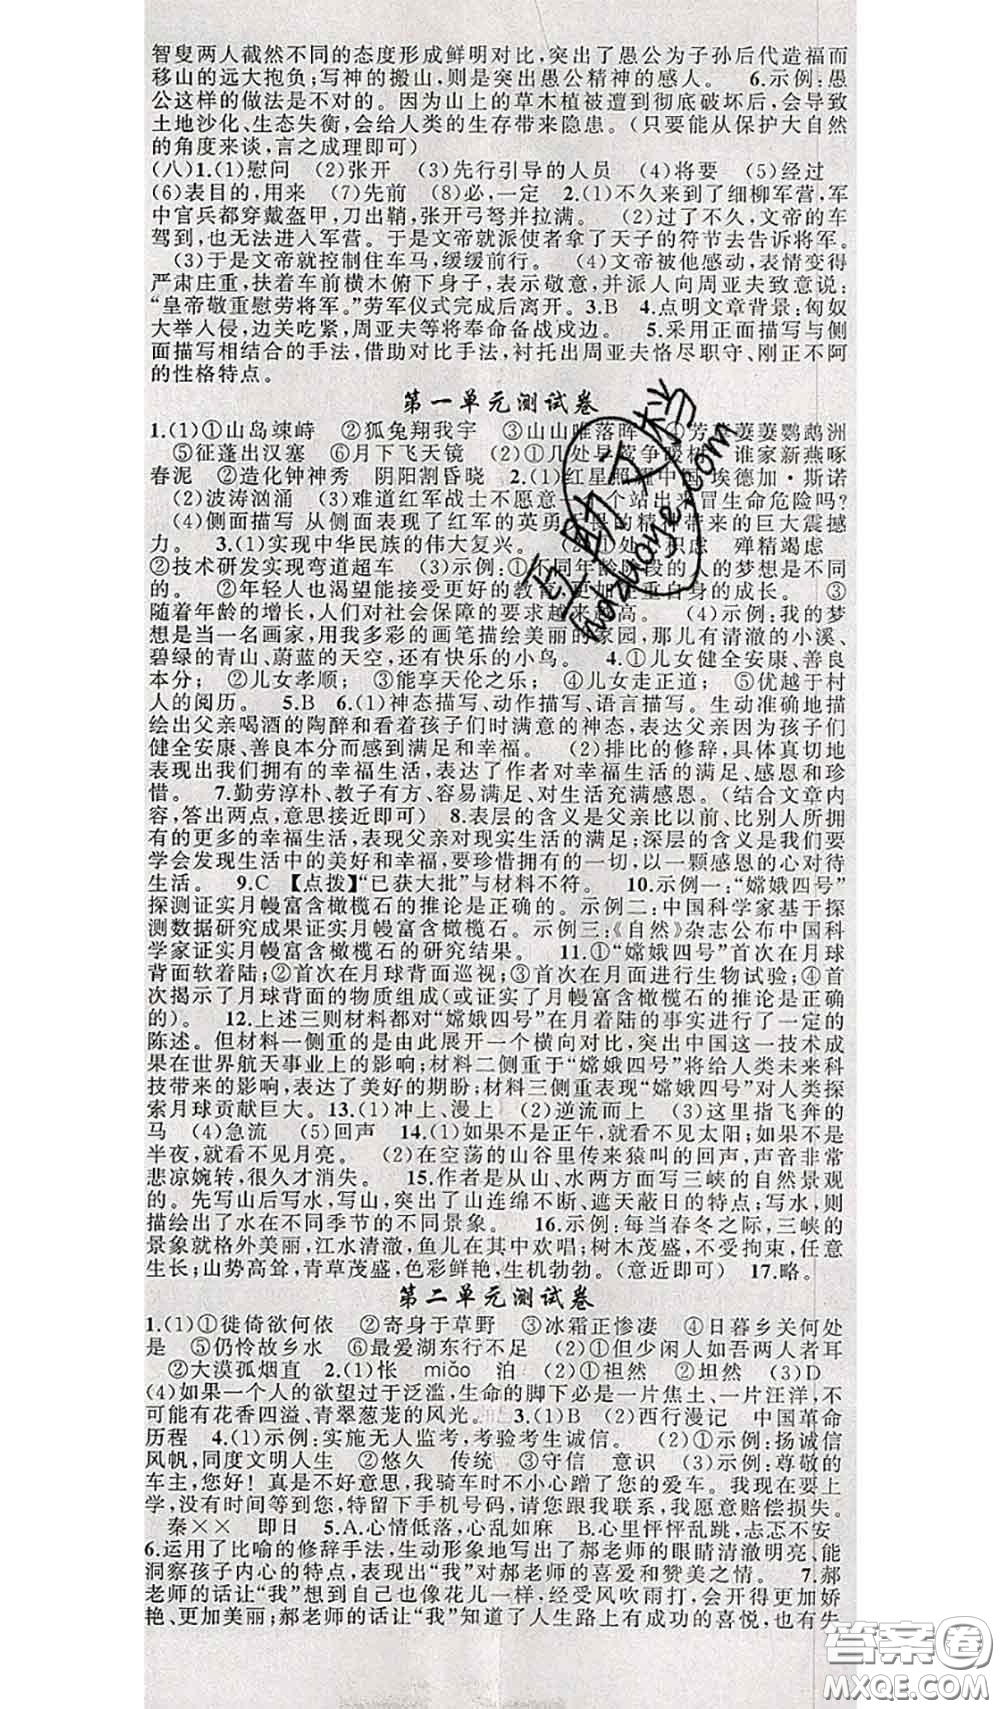 智叟两人截然不同的态度形成鲜明对比,突出了愚公为子孙后代造福而
移山的远大抱负;写神的搬山,则是突出愚公精神的感人。 6.示例:愚
公这样的做法是不对的。因为山上的草木植被遭到彻底破坏后,会导致
土地沙化、生态失衡,会给人类的生存带来隐患。(只要能从保护大自然
的角度来谈,言之成理即可)
(八)1.(1)慰问 (2)张开 (3)先行引导的人员 (4)将要 (5)经过
(6)表目的,用来 (7)先前 (8)必,一定 2.(1)不久来到了细柳军营,军
中官兵都穿戴盔甲,刀出鞘,张开弓弩并拉满。 (2)过了不久,文帝的车
驾到,也无法进入军营。于是文帝就派使者拿了天子的符节去告诉将军。
(3)于是文帝就控制住车马,缓缓前行。 (4)文帝被他感动,表情变得
严肃庄重,扶着车前横木俯下身子,表示敬意,并派人向周亚夫致意说:
“皇帝敬重慰劳将军。”劳军仪式完成后离开。 3.B 4.点明文章背景:匈奴
大举入侵,边关吃紧,周亚夫等将奉命备战戍边。 5.采用正面描写与侧
面描写相结合的手法,借助对比手法,衬托出周亚夫恪尽职守、刚正不阿
的性格特点。
第一单元测试卷
1.(1)①山岛竦峙 ②狐兔翔我宇 ③山山唯落晖 ④芳 萋萋鹦鹉洲
⑤征蓬出汉塞 ⑥月下飞天镜 (2)①几处早莺争暖树 谁家新燕啄
春泥 ②造化钟神秀 阴阳割昏晓 2.(1)红星照耀中国 埃德加·斯诺
(2)波涛汹涌 (3)难道红军战士不愿意一 个站出来冒生命危险吗?
(4)侧面描写 从侧面表现了红军的英勇 的精 带来的巨大震撼
力。 3.(1)实现中华民族的伟大复兴。 (2)①处 积虑 殚精竭虑
②技术研发实现弯道超车 (3)示例:①不同年龄阶段的人的梦想是不同
的。 ②年轻人也渴望能接受更好的教育,更加 重自身的成长。 ③
随着年龄的增长,人们对社会保障的要求越来越高。 (4)示例:我的梦
想是当一名画家,用我多彩的画笔描绘美丽的家园,那儿有清澈的小溪、
碧绿的青山、蔚蓝的天空,还有快乐的小鸟。 4.①儿女健全安康、善良
本分; ②儿女孝顺; ③能享天伦之乐; ④儿女走正道; ⑤优越于村
人的阅历。 5.B 6.(1)神态描写、动作描写、语言描写。生动准确地描
绘出父亲喝酒的陶醉和看着孩子们时满意的神态,表达父亲因为孩子们
健全安康、善良本分而感到满足和幸福。 (2)排比的修辞,具体真切地
表现出我们拥有的幸福生活,表达了作者对幸福生活的满足、感恩和珍
惜。 7.勤劳淳朴、教子有方、容易满足、对生活充满感恩。(结合文章内
容,答出两点,意思接近即可) 8.表层的含义是父亲比以前、比别人所拥
有的更多的幸福生活,表现父亲对现实生活的满足;深层的含义是我们要
学会发现生活中的美好和幸福,要珍惜拥有的一切,以一颗感恩的心对待
生活。 9.C 【点拨】“已获大批”与材料不符。 10.示例一:“嫦娥四号”
探测证实月幔富含橄榄石的推论是正确的。示例二:中国科学家基于探
测数据研究成果证实月幔富含橄榄石。示例三:《自然》杂志公布中国科
学家证实月幔富含橄榄石的研究结果。 11.①“嫦娥四号”首次在月球
背面软着陆;②首次在月球背面巡视;③首次在月面进行生物试验;④首
次揭示了月球背面的物质组成(或证实了月幔富含橄榄石的推论是正确
的)。 12.上述三则材料都对“嫦娥四号”在月着陆的事实进行了一定的
陈述。但材料一侧重的是由此展开一个横向对比,突出中国这一技术成
果在世界航天事业上的影响;材料二侧重于“嫦娥四号”将给人类未来科
技带来的影响,表达了美好的期盼;材料三侧重表现“嫦娥四号”对人类探
索月球贡献巨大。 13.(1)冲上、漫上 (2)逆流而上 (3)这里指飞奔的
马 (4)急流 (5)回声 14.(1)如果不是正午,就看不见太阳;如果不是
半夜,就看不见月亮。 (2)在空荡的山谷里传来猿叫的回声,声音非常
悲凉婉转,很久才消失。 15.作者是从山、水两方面写三峡的自然景观
的。先写山后写水,写山,突出了山连绵不断、遮天蔽日的特点;写水,则
描绘出了水在不同季节的不同景象。 16.示例:每当春冬之际,三峡的
景象就格外美丽,江水清澈,鱼儿在其中欢唱;树木茂盛,不受拘束,任意
生长;山势高耸,青草茂盛,色彩鲜艳,生机勃勃。(意近即可) 17.略。
第二单元测试卷
1.(1)①徙倚欲何依 ②寄身于草野 ③冰霜正惨凄 ④日暮乡关何处
是 ⑤仍怜故乡水 ⑥最爱湖东行不足 (2)①但少闲人如吾两人者耳
②大漠孤烟直 2.(1)怅 miǎo 泊 (2)①袒然 ②坦然 (3)D
(4)如果一个人的欲望过于泛滥,生命的脚下必是一片焦土、一片汪洋,不
可能有花香四溢、青翠葱茏的风光。 3.(1)B (2)西行漫记 中国革命
历程 4.(1)示例:实施无人监考,考验考生诚信。 (2)①示例:扬诚信
风帆,同度文明人生 ②悠久 传统 ③守信 意识 (3)示例:尊敬的
车主,您好! 真是不好意思,我骑车时不小心蹭了您的爱车。我现在要上
学,没有时间等到您,特留下手机号码,请您跟我联系,我愿意赔偿损失。
秦×× 即日 5.A.心情低落,心乱如麻 B.心里怦怦乱跳,忐忑不安
6.运用了比喻的修辞手法,生动形象地写出了郝老师的眼睛清澈明亮、能
洞察孩子内心的特点,表现出“我”对郝老师的喜爱和赞美之情。 7.郝
老师的话让“我”想到自己也像花儿一样,经受风吹雨打,会开得更加娇
艳、更加美丽;郝老师的话让“我”知道了人生路上有成功的喜悦,也有失
答案圈
MXQE.COM